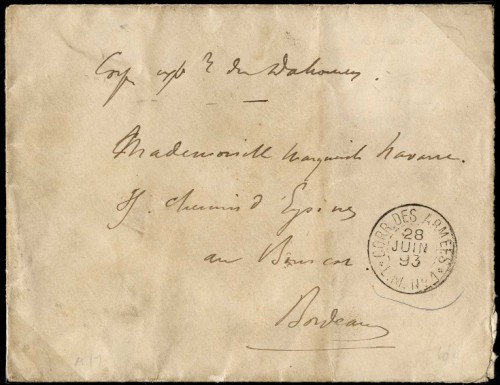 Corps expre du Dahomey.
Mademoiselle Marguerite Navarre.
chemin d'Eysines
au Bouscat.
Bordeaux
CORR. DES ARMEES
28
JUIN
93
L.M. No 1